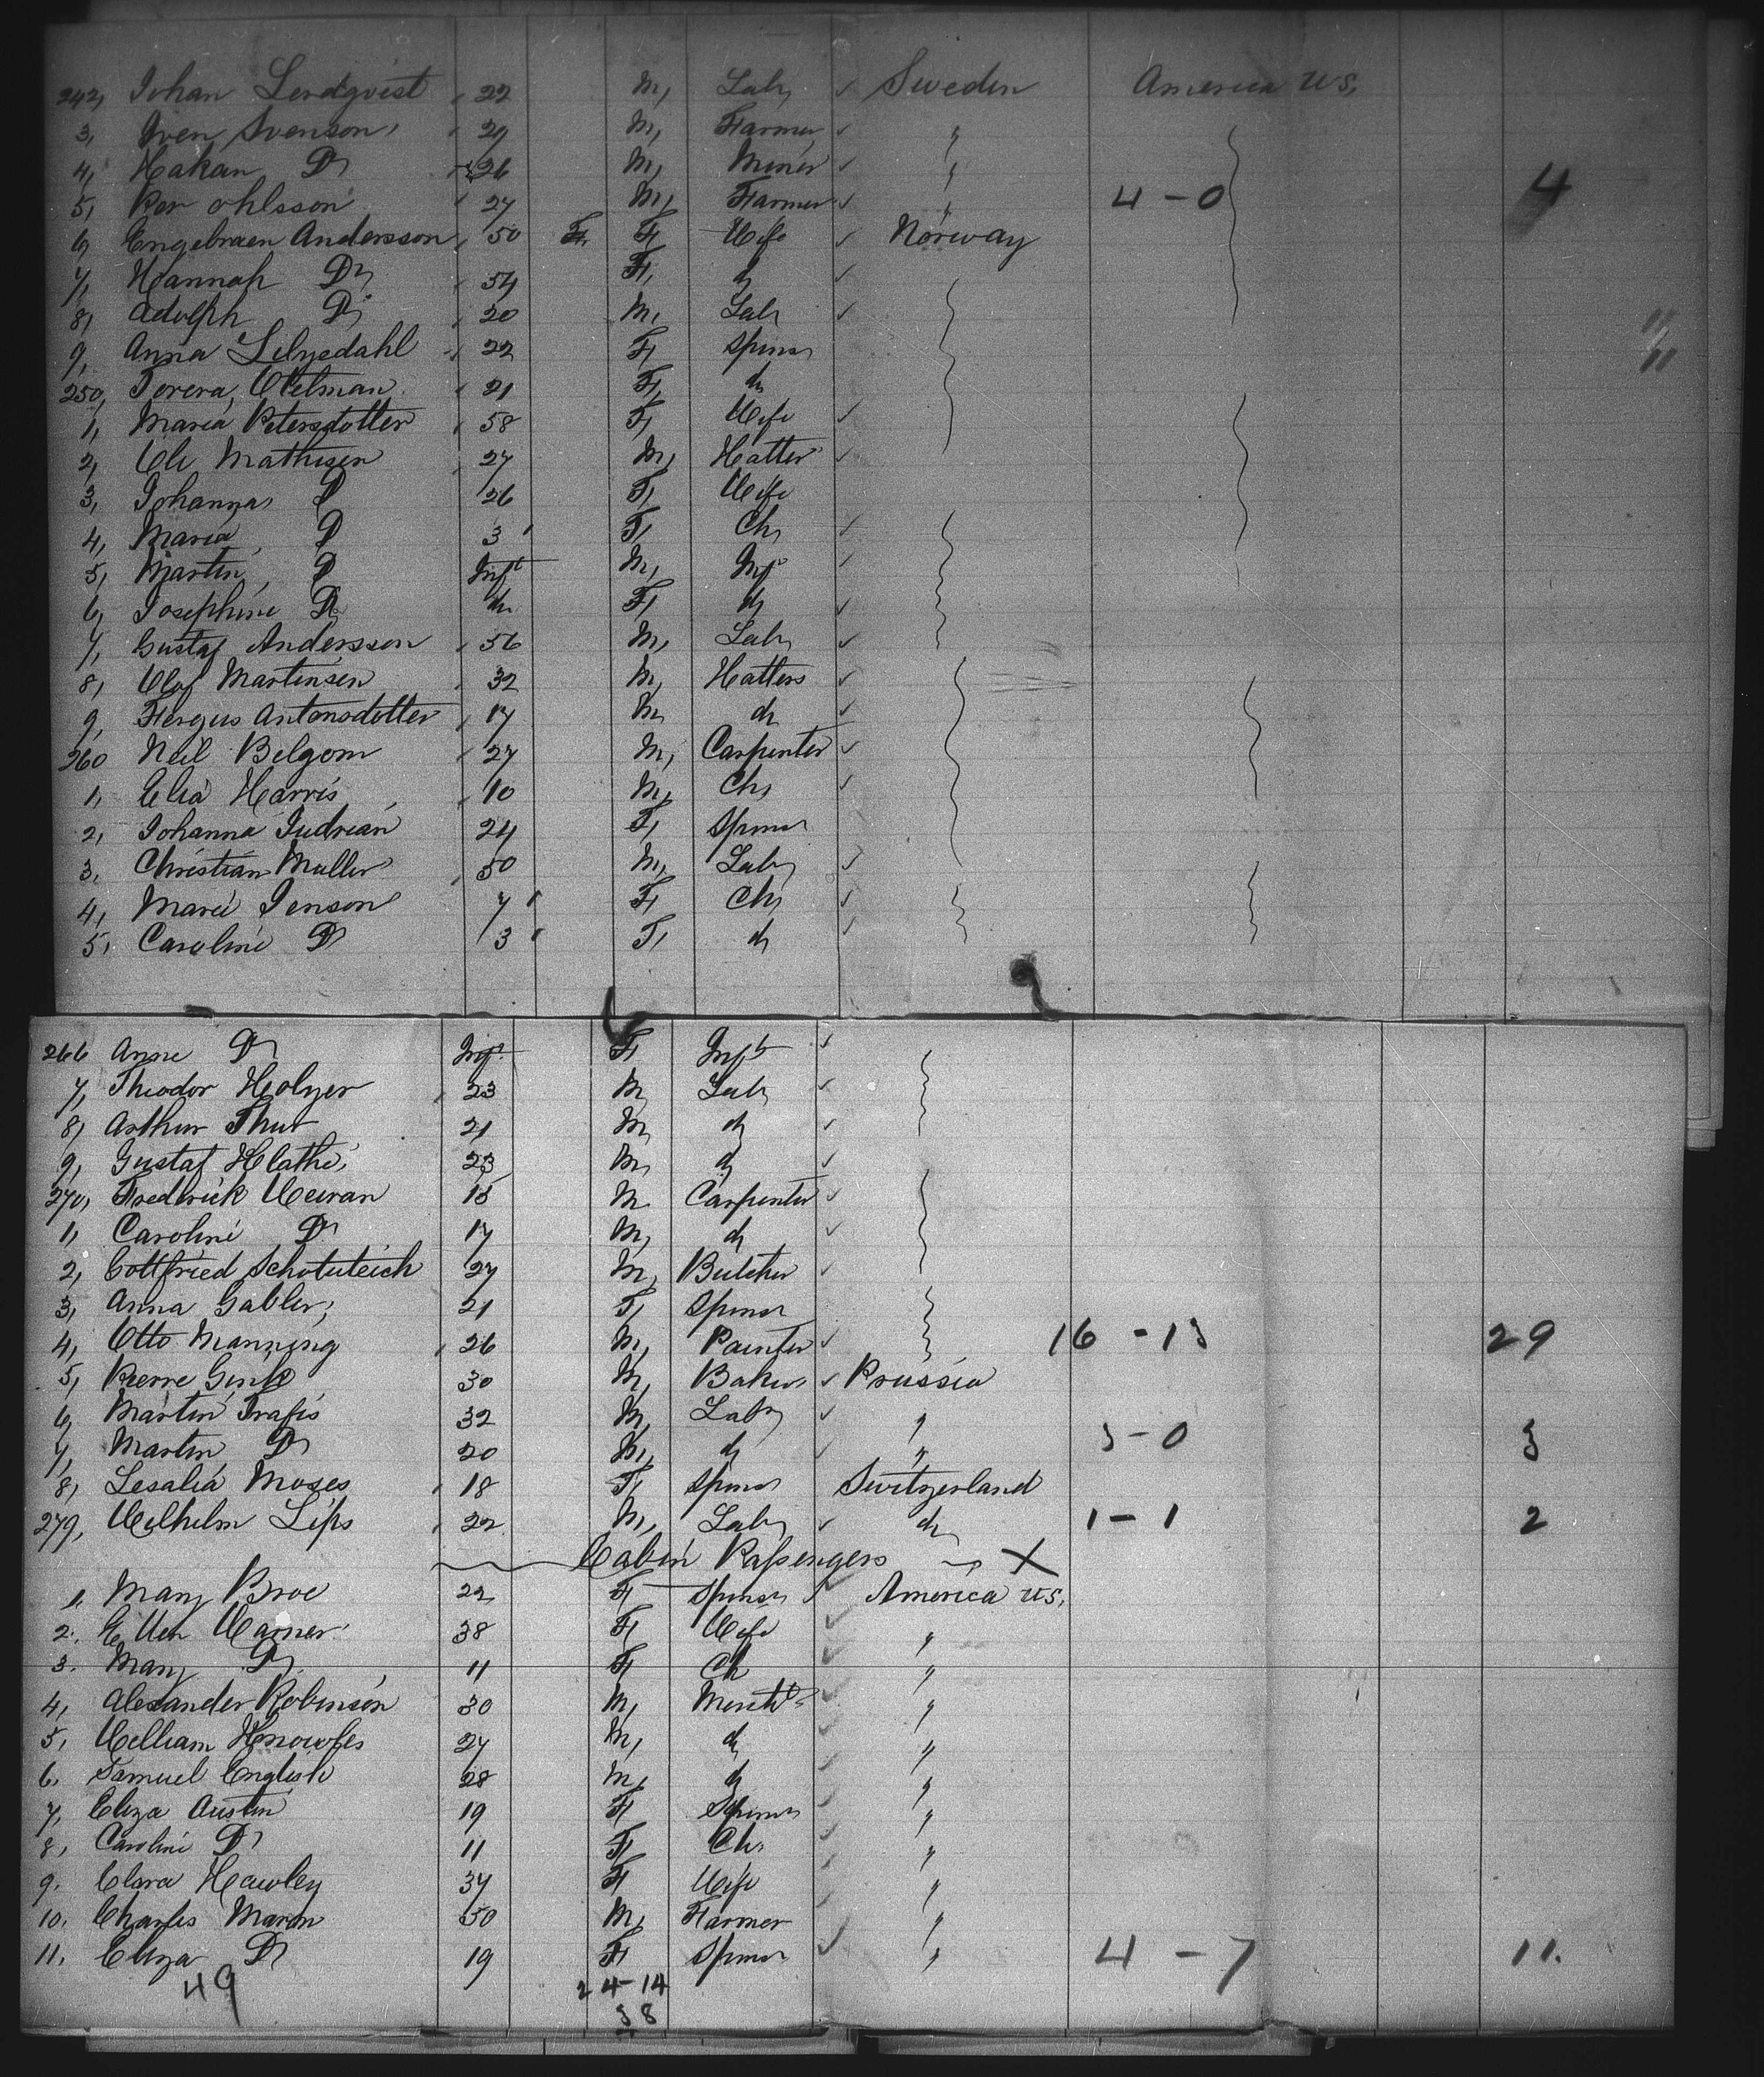 242, Johan Lindqvist 22 M, Lab, Sweden America U.S.
3, Sven Svenson 29 M, Farmer "
4, Hakan Do 26 M, Miner " 4
5, Per Ohlsson 27 M, Farmer " 4 - 0
6, Engebraen Andersson 50 F, F, Wife Norway
7, Hannah Do 54 F, do
8, Adolph Do 20 M, Lab
9, Anna Lilysdahl 22 F, Spinsr 11
250, Torera, Oletman 21 F, do
1, Maria Petersdotter 58 F, Wife
2, Ole Mathisen 27 M, Hatter
3, Johanna D 26 F, Wife
4, Maria D 3 F, Ch,
5, Martin, D Inft M, Inf
6, Josephine Do do F, do
7, Gustaf Andersson 56 M, Lab,
8, Olof Martinsen 32 M, Hatters
9, Fergus Antonsdotter 17 M do
260 Neil Belgom 27 M, Carpenter
1, Elia Harris 10 M, Ch,
2, Johanna Judrian 24 F, Spinsr
3, Christian Muller 50 M, Lab,
4, Marie Jenson 7 F, Ch,
5, Caroline Do 3 F, do
266 Anne Do Inft F, Inft
7, Theodor Holzer 23 M, Lab,
8, Arthur Thut 21 M, do
9, Gustaf Hlathe, 23 M, do
270, Fredrick Weiran 18 M Carpenter
1, Caroline Do 17 M, do
2, Gottfried Schotuteich 27 M, Butcher
3, Anna Gabler, 21 F, Spinsr
4, Otto Manning 26 M, Painter 16 - 13 29
5, Pierre Gink 30 M, Baker Prussia
6, Martin Trafis 32 M, Labr "
7, Martin Do 20 M, do " 3 - 0 3
8, Lesalia Moses 18 F, Spinsr Switzerland
279, Wilhelm Lips 22 M, Lab, do 1 - 1 2
Cabin Passengers X
1, Mary Broe 22 F Spinsr America U.S.
2, Ellen Warner 38 F, Wife "
3. Mary Do 11 F, Ch "
4, Alexander Robinson 30 M, Mercht "
5, William Knowles 27 M, do "
6, Samuel English 28 M, do "
7, Eliza Austin 19 F, Spinsr "
8, Caroline Do 11 F, Ch, "
9, Clara Hawley 34 F, Wife "
10. Charles Maron 50 M, Farmer "
11. Eliza Do 19 F, Spinsr " 4 - 7 11.
49 24 - 14
38